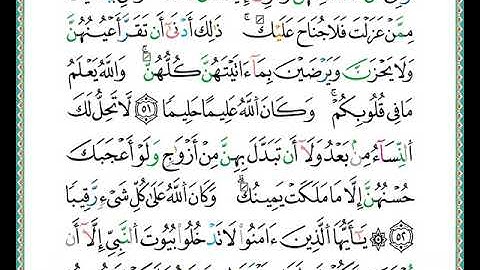 مِمَّنْ عَزَلْتَ فَلَا جُنَاحَ عَلَيْكَ ۚ ذَٰلِكَ أَدْنَىٰٓ أَن تَقَرَّ أَعْيُنُهُنَّ
وَلَا يَحْزَنَّ وَيَرْضَيْنَ بِمَآ ءَاتَيْتَهُنَّ كُلُّهُنَّ ۚ وَٱللَّهُ يَعْلَمُ
مَا فِى قُلُوبِكُمْ ۚ وَكَانَ ٱللَّهُ عَلِيمًا حَلِيمًا ٥١ لَّا يَحِلُّ لَكَ
ٱلنِّسَآءُ مِنۢ بَعْدُ وَلَآ أَن تَبَدَّلَ بِهِنَّ مِنْ أَزْوَٰجٍ وَلَوْ أَعْجَبَكَ
حُسْنُهُنَّ إِلَّا مَا مَلَكَتْ يَمِينُكَ ۗ وَكَانَ ٱللَّهُ عَلَىٰ كُلِّ شَىْءٍ رَّقِيبًا
٥٢ يَٰٓأَيُّهَا ٱلَّذِينَ ءَامَنُوا۟ لَا تَدْخُلُوا۟ بُيُوتَ ٱلنَّبِىِّ إِلَّآ أَن